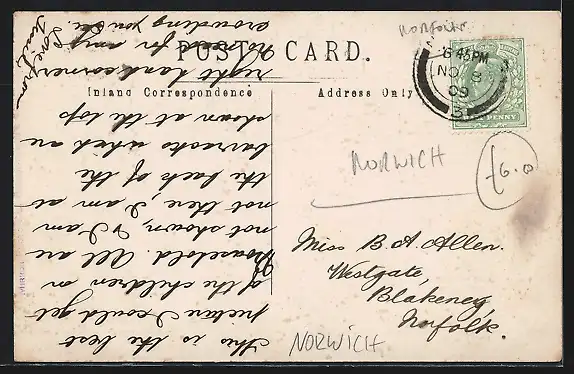 Norfolk
POST CARD.
Inland Correspondence
Address Only
6 45 PM
NO 8
09
3
PENNY
NORWICH
£6.0
Miss B A Allen.
Westgate,
Blakeney
Norfolk.
NORWICH
This is the best
picture I could get
of the children on
Household. All are
not shown, & I am
not there, I am at
the back of the
barracks which are
shown at the top
right hand corner
no need for any
crowding you see.
Love from